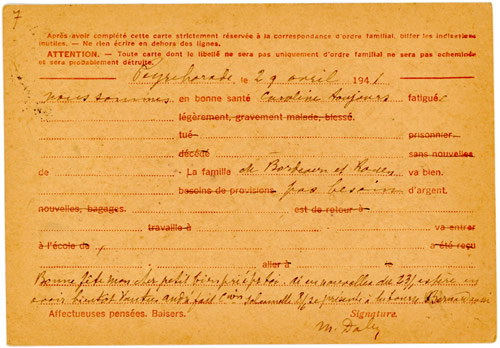 7
Après avoir complété cette carte strictement réservée à la correspondance d'ordre familial, biffer les indications
inutiles. — Ne rien écrire en dehors des lignes.
ATTENTION. — Toute carte dont le libellé ne sera pas uniquement d'ordre familial ne sera pas acheminée
et sera probablement détruite.
Peyrehorade, le 29 avril 1941
nous sommes en bonne santé Caroline toujours fatiguée
légèrement, gravement malade, blessé.
tué prisonnier.
décédé sans nouvelles
de - La famille de Bordeaux et va bien.
besoins de provisions pas besoin d'argent.
nouvelles, bagages. est de retour à
travaille à va entrer
à l'école de a été reçu
aller à le
Bonne fête mon cher petit bien prié pr toi ai eu nouvelles du 23 espère en
avoir bientôt se présente à bourse Bernard
Affectueuses pensées. Baisers. Signature.
M. Daley